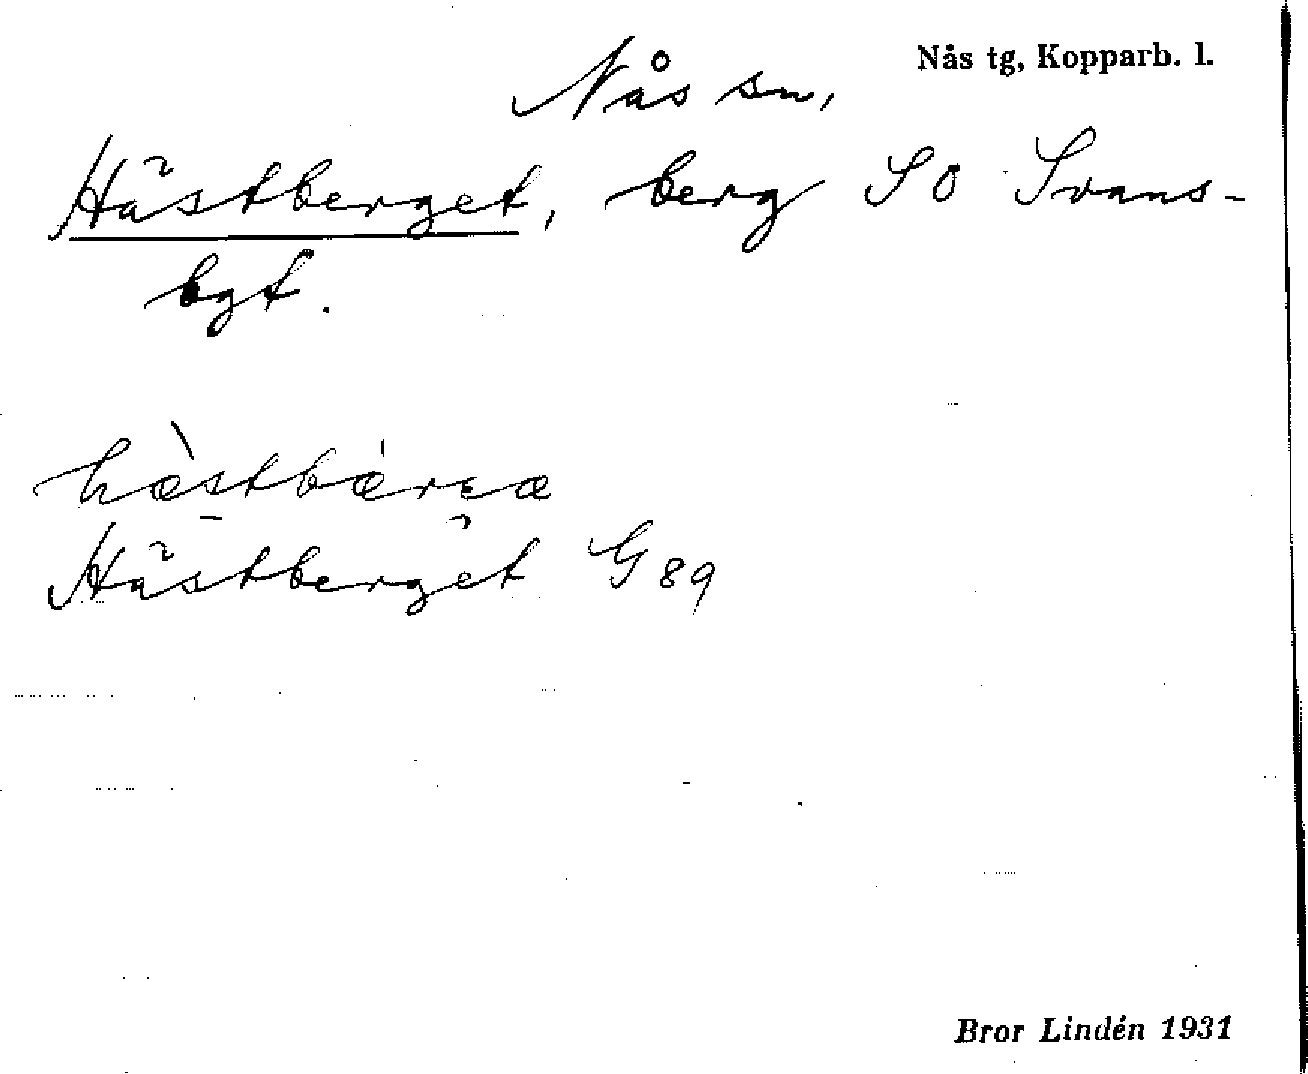 Nås tg, Kopparb. l.
Nås sn,
Hästberget, berg SO Svans-
bgt.
Hästberget G 89
Bror Lindén 1931